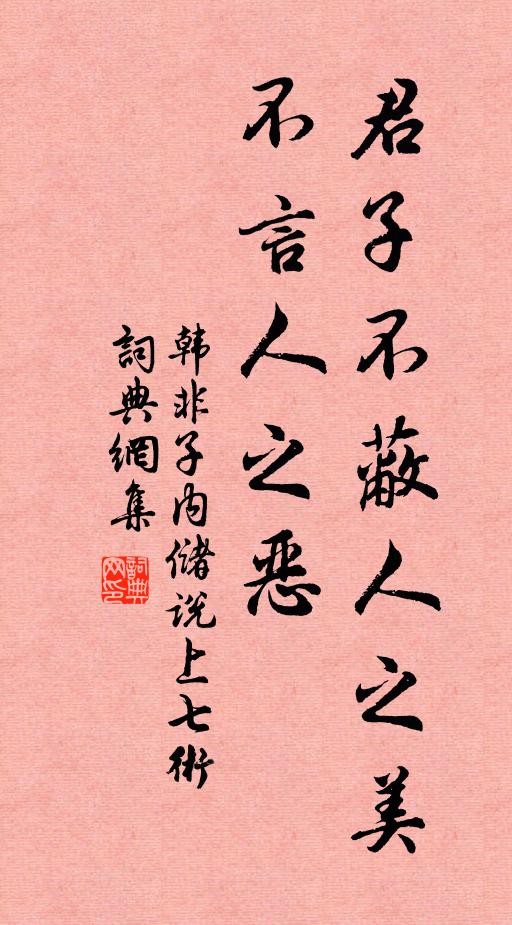 君子不蔽人之美
不言人之恶
韩非子内储说上七術
詞典網集
詞典网印